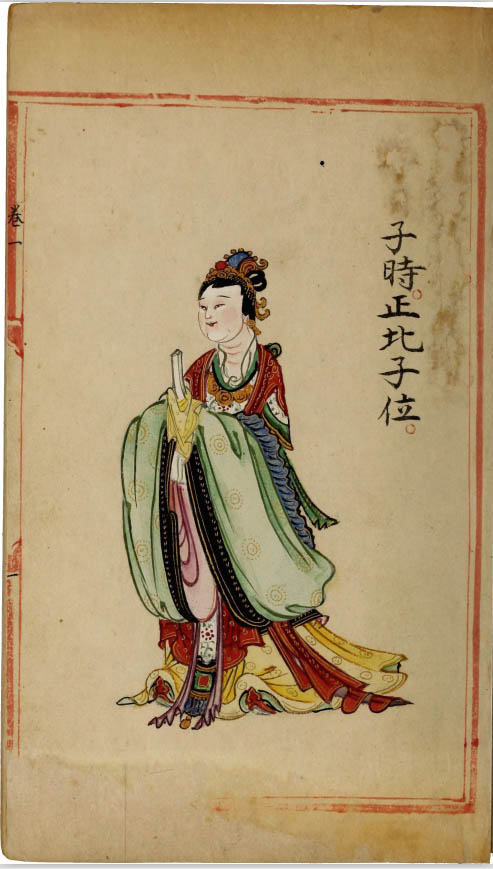 子時。正北子位。
卷一
一